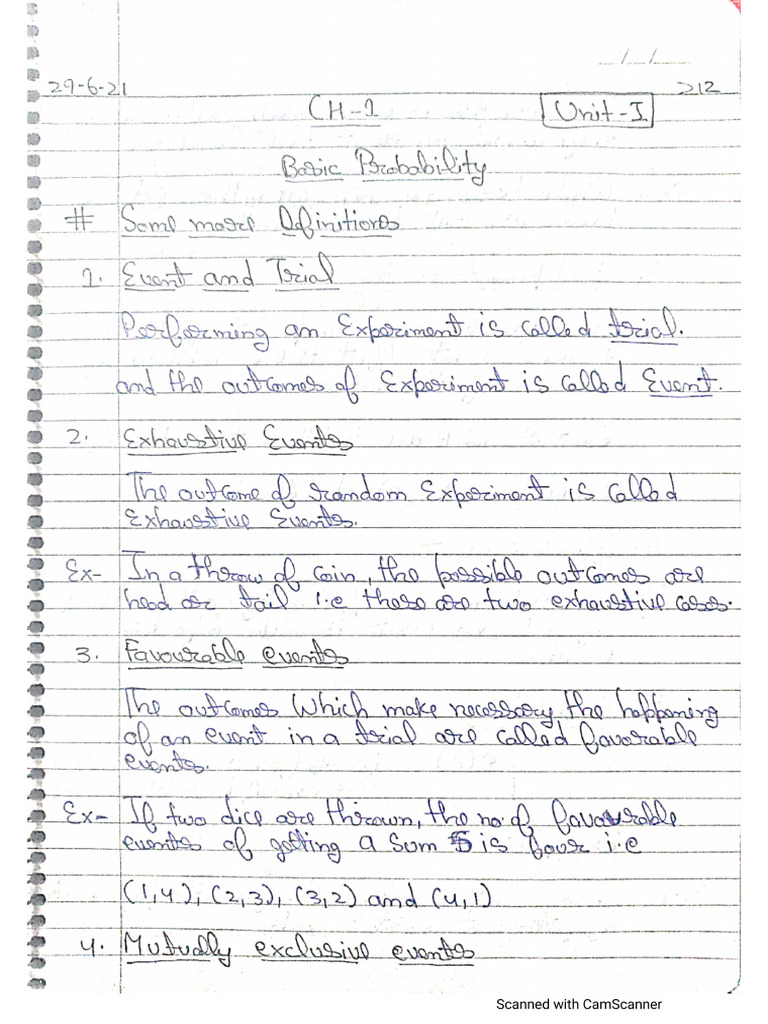 29-6-21
212
CH-1
Unit-I
Basic Probability
# Some more Definitions
1. Event and Trial
Performing an Experiment is called trial.
and the outcomes of Experiment is called Event.
2. Exhaustive Events
The outcome of random Experiment is called
Exhaustive Events.
Ex- In a throw of coin, the possible outcomes are
head or tail i.e there are two exhaustive cases.
3. Favourable events
The outcomes which make necessary the happening
of an event in a trial are called favorable
events.
Ex- If two dice are thrown, the no. of favourable
events of getting a sum 5 is four i.e
(1,4), (2,3), (3,2) and (4,1)
4. Mutually exclusive events
Scanned with CamScanner